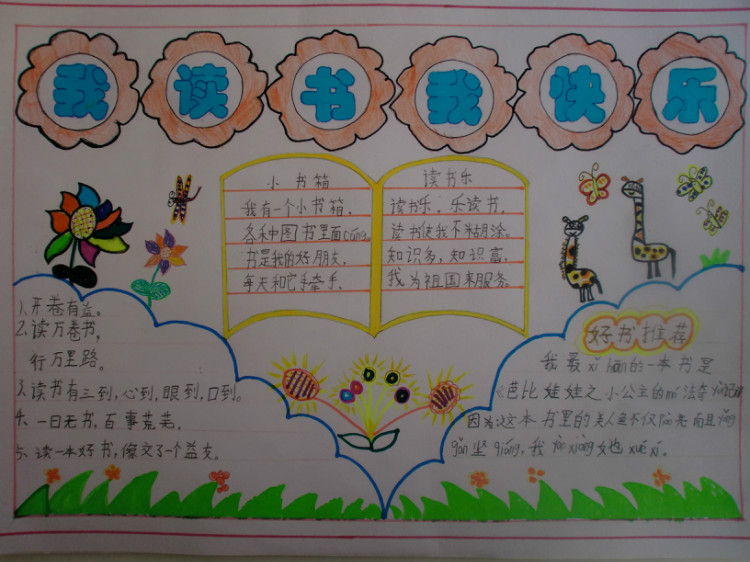 我读书我快乐
小书箱
我有一个小书箱，
各种图书里面cáng。
书是我的好朋友，
每天和它手牵手。
读书乐
读书乐，乐读书，
读书使我不糊涂。
知识多，知识富，
我为祖国来服务。
1、开卷有益。
2、读万卷书，
行万里路。
3、读书有三到，心到，眼到，口到。
4、一日无书，百事荒芜。
5、读一本好书，像交了一个益友。
好书推荐
我最xǐ huān的一本书是
《芭比娃娃之小公主的mó法奇
因为这本书里的美人鱼不仅piào亮而且yǒng
gǎn坚qiáng，我yào xiàng她xué xí。